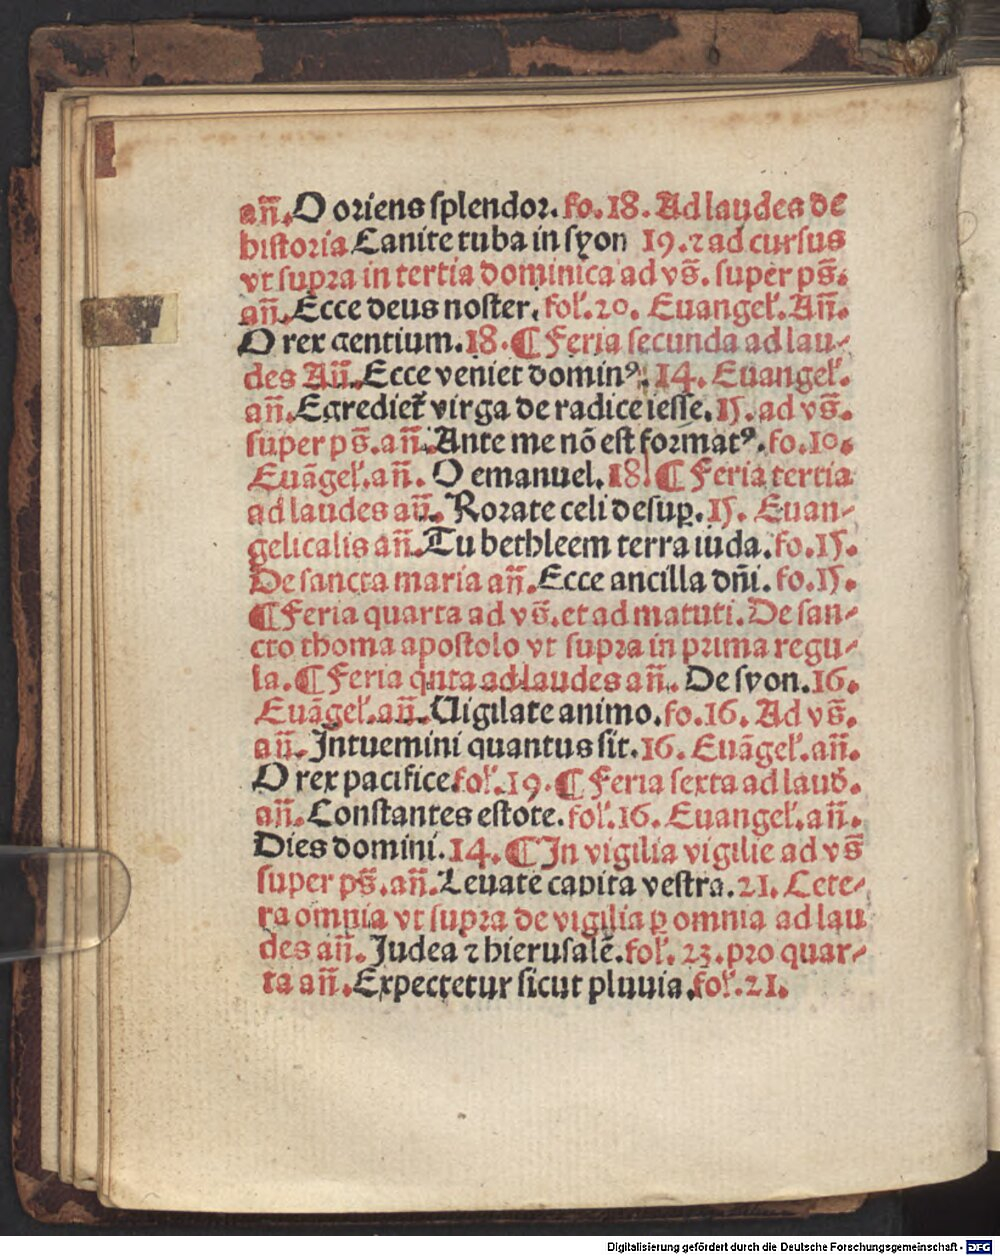 añ. O oriens splendor. fo. 18. Ad laudes de
historia Canite tuba in syon 19. ⁊ ad cursus
vt supra in tertia dominica ad vs̄. super ps̄.
añ. Ecce deus noster. fol̕. 20. Euangel̕. Añ.
O rex gentium. 18. ¶ Feria secunda ad lau-
des Añ. Ecce veniet dominꝰ. 14. Euangel̕.
añ. Egrediet᷑ virga de radice iesse. 15. ad vs̄.
super ps̄. añ. Ante me nō est formatꝰ. fo. 10.
Euāgel̕. añ. O emanuel. 18. ¶ Feria tertia
ad laudes añ. Rorate celi desuꝑ. 15. Euan-
gelicalis añ. Tu bethleem terra iuda. fo. 15.
De sancta maria añ. Ecce ancilla dñi. fo. 15.
¶ Feria quarta ad vs̄. et ad matuti. De san-
cto thoma apostolo vt supra in prima regu-
la. ¶ Feria qnta ad laudes añ. De syon. 16.
Euāgel̕. añ. Uigilate animo. fo. 16. Ad vs̄.
añ. Intuemini quantus sit. 16. Euāgel̕. añ.
O rex pacifice. fol̕. 19. ¶ Feria sexta ad laud̕.
añ. Constantes estote. fol̕. 16. Euangel̕. añ.
Dies domini. 14. ¶ In vigilia vigilie ad vs̄
super ps̄. añ. Leuate capita vestra. 21. Cete-
ra omnia vt supra de vigilia ꝑ omnia ad lau
des añ. Judea ⁊ hierusalē. fol̕. 23. pro quar-
ta añ. Expectetur sicut pluuia. fol̕. 21.
Digitalisierung gefördert durch die Deutsche Forschungsgemeinschaft - DFG